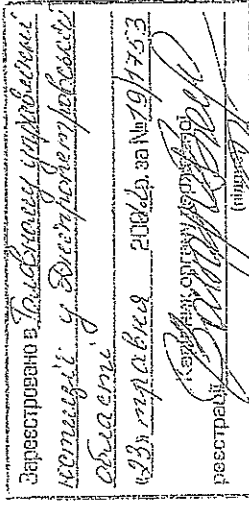 Зареєстровано в Головному управлінні
юстиції у Дніпропетровській
області
«23» травня 200 р. за № 19/1753
Керівник органу державної
реєстрації
(підпис)